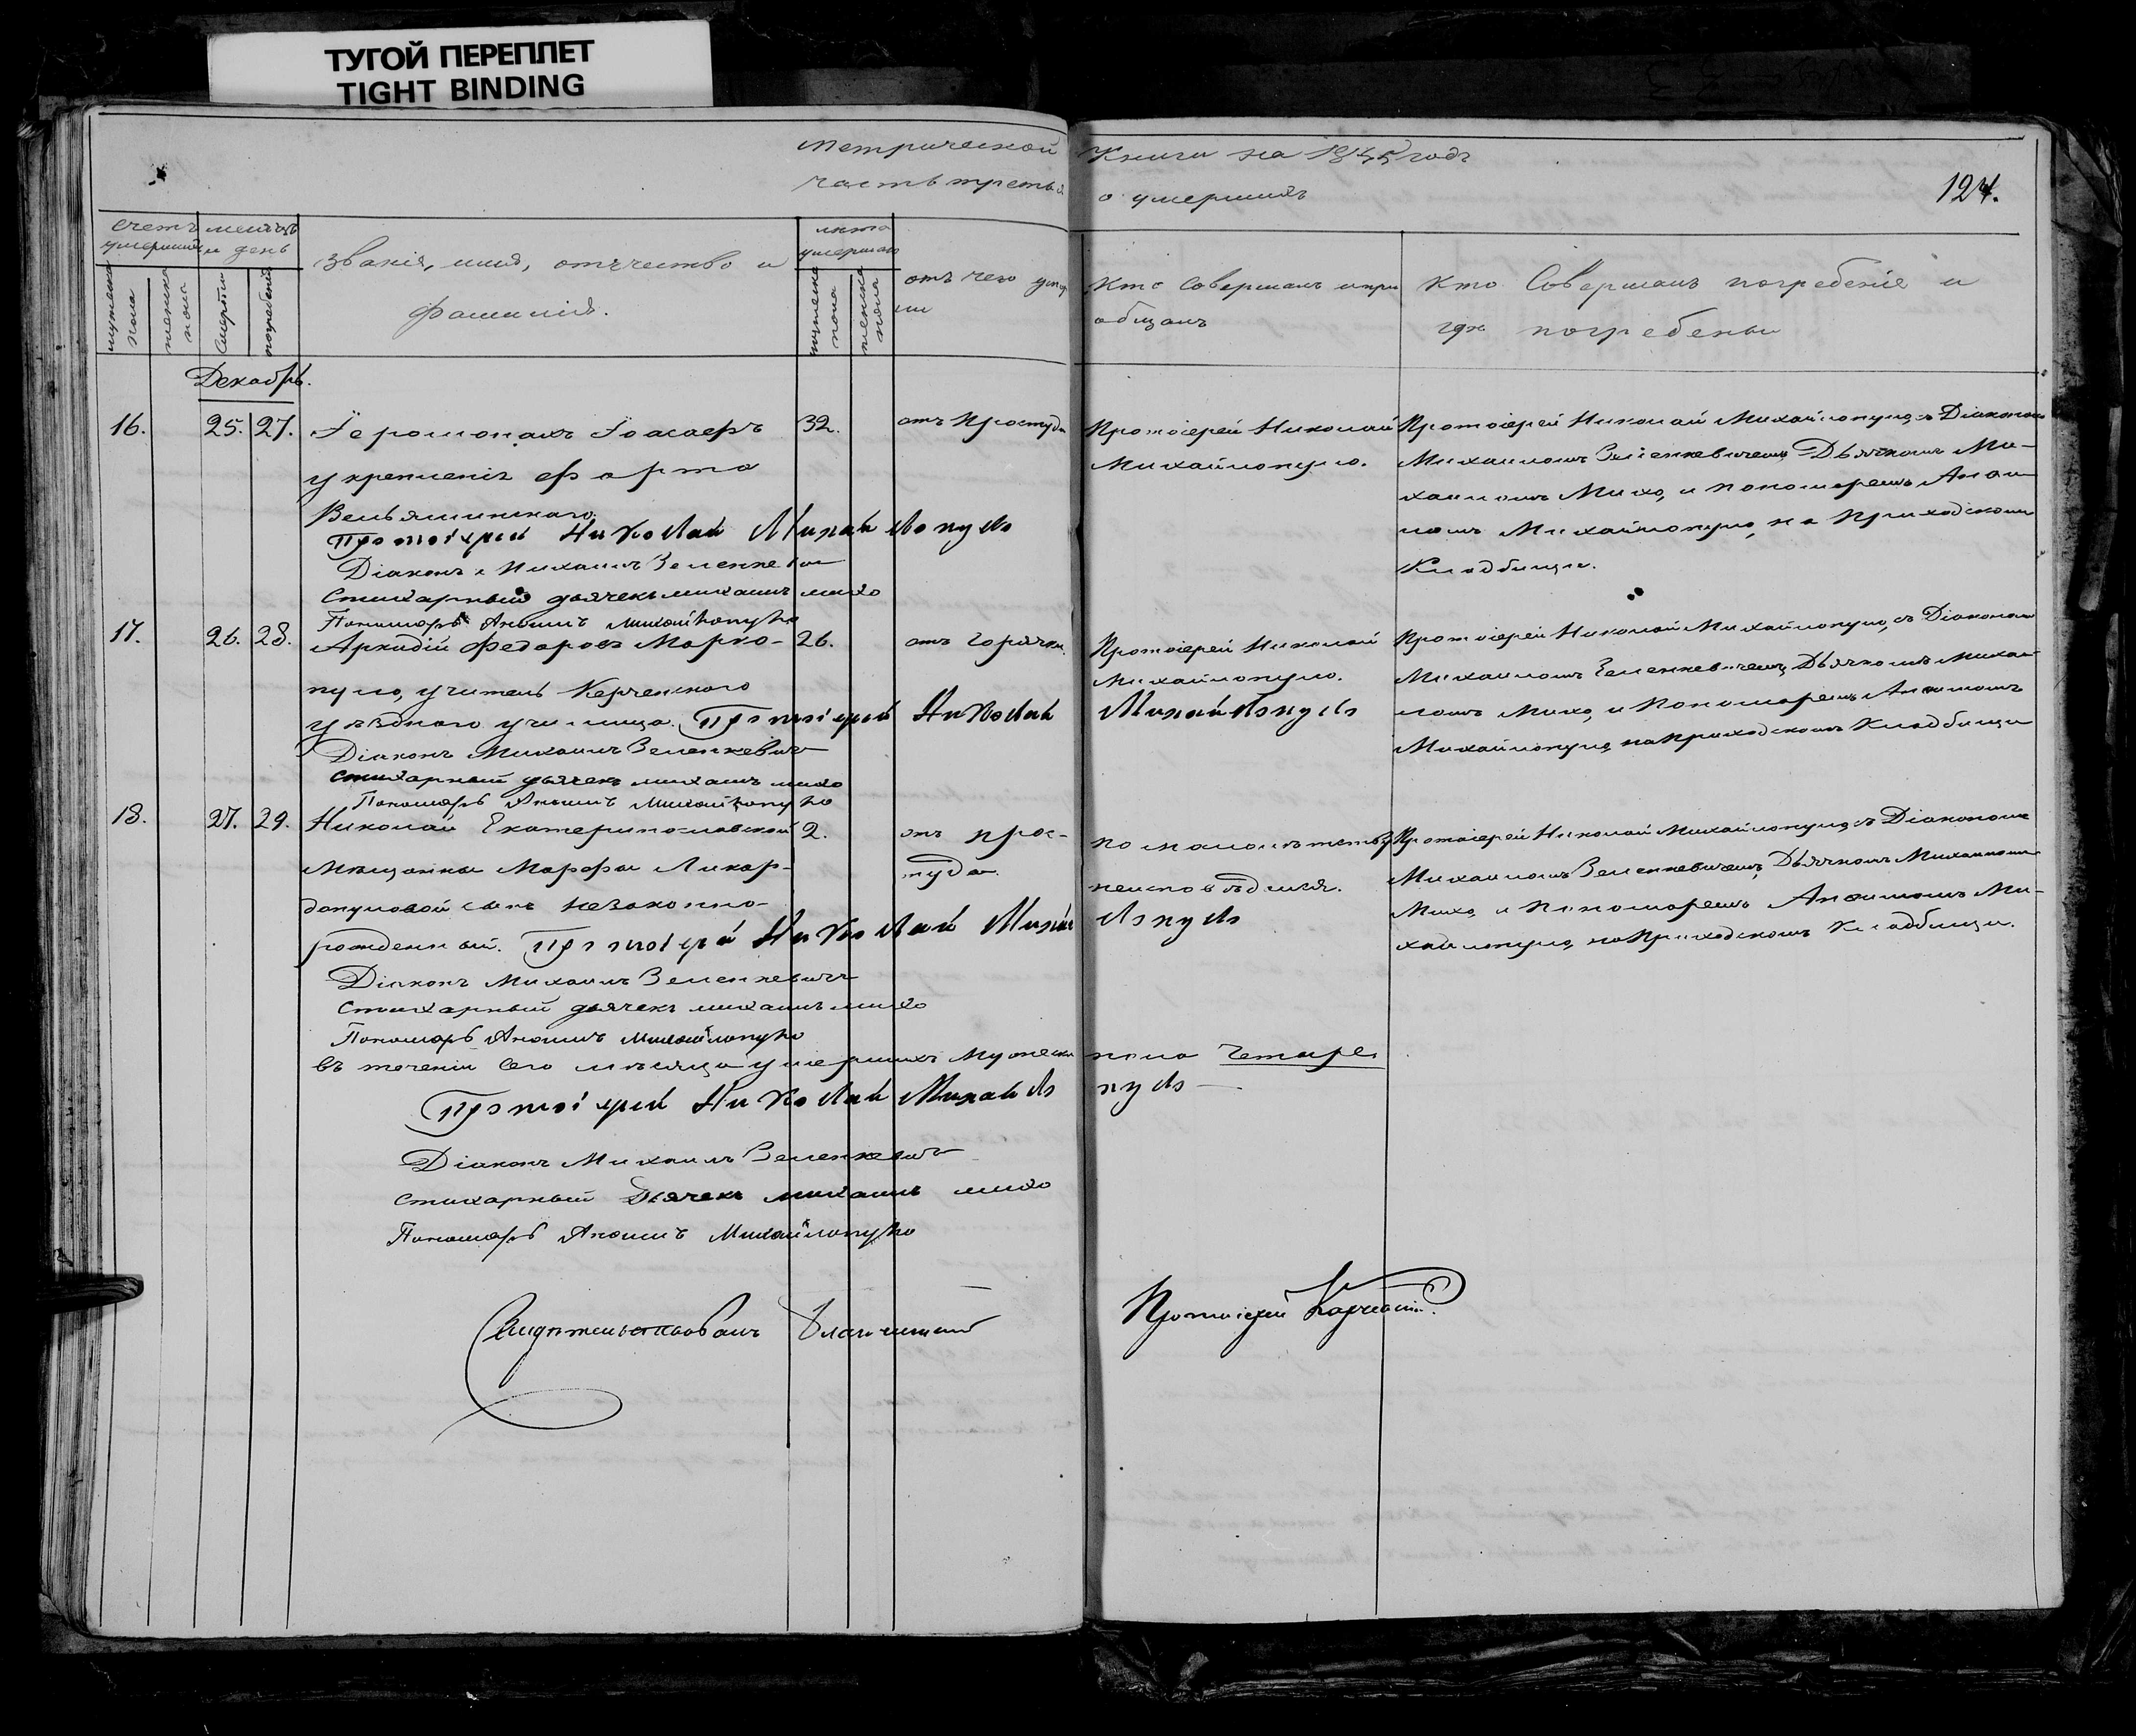 ТУГОЙ ПЕРЕПЛЕТ
TIGHT BINDING
Метрической Книги на 1845 годъ
часть третья о умершихъ
124.
Счетъ умершихъ
мужеска пола
женска пола
месяцъ и день
Смерти
погребенія
званія, имя, отчество и
фамилія.
лета умершаго
мужеска пола
женска пола
отъ чего умер
ли
Кто Совершалъ и при
общалъ
Кто Совершалъ погребеніе и
где погребены
Декабрь.
16. 25. 27. Іеромонахъ Іоасафъ 32. отъ Простуды
укрепленія Форта
Вельяминскаго.
Протоіерей Николай
Михайлопуло.
Протоіерей Николай Михайлопуло, съ Діакономъ
Михаиломъ Зеленкевичемъ, Дьячкомъ Ми-
хаиломъ Михо, и пономаремъ
Михайлопуло, на Приходскомъ
Кладбище.
Протоіерей Николай Михайлопуло
Діаконъ Михаилъ Зеленкевич
Стихарный дьячекъ михаилъ михо
Пономарь Михайлопуло
17. 26. 28. Аркадій Федоровъ Марко- 26. отъ горячки.
пуло, учитель Керченского
уезднаго училища.
Протоіерей Николай
Михайлопуло.
Протоіерей Николай Михайлопуло, съ Діакономъ
Михаиломъ Зеленкевичемъ, Дьячкомъ Михаи-
ломъ Михо, и Пономаремъ
Михайлопуло, на Приходскомъ Кладбище
Протоіерей Николай Михайлопуло
Діаконъ Михаилъ Зеленкевичъ
стихарный дьячекъ михаилъ михо
Пономарь Михайлопуло
18. 27. 29. Николай Екатеринославской 2. отъ прос-
туды.
Мещанки Марфы Ликар-
допуловой сынъ незаконно-
рожденный.
по малолетству
неисповедился.
Протоіерей Николай Михайлопуло, съ Діакономъ
Михаиломъ Зеленкевичемъ, Дьячкомъ Михаиломъ
Михо, и Пономаремъ Ми-
хайлопуло, на Приходскомъ Кладбище.
Протоіерей Николай Михайлопуло
Діаконъ Михаилъ Зеленкевичъ
стихарный дьячекъ михаилъ михо
Пономарь Михайлопуло
въ теченіи сего месяца умершихъ Мужеска пола Четыре
Протоіерей Николай Михайлопуло
Діаконъ Михаилъ Зеленкевичъ
стихарный Дьячекъ михаилъ михо
Пономарь Михайлопуло
Свидетельствовалъ Благочинный Протоіерей